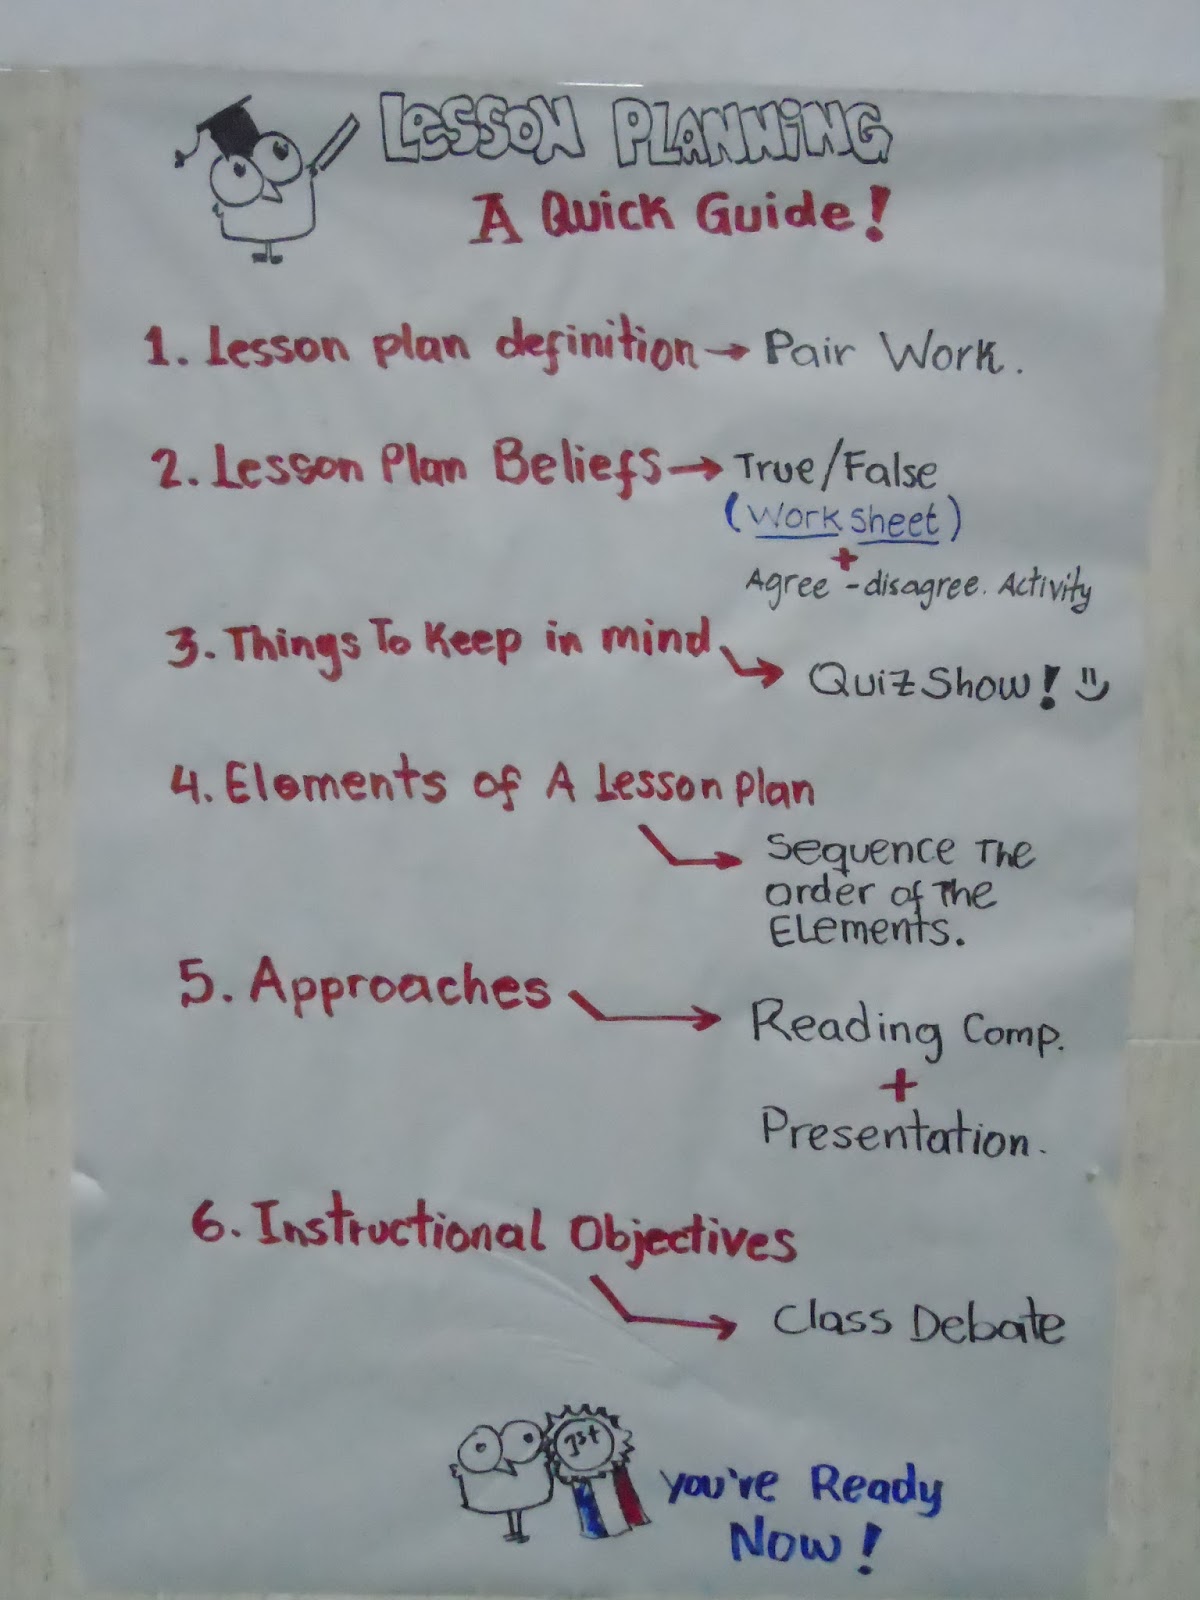 Lesson Planning
A Quick Guide!
1. Lesson plan definition → Pair Work.
2. Lesson Plan Beliefs → True/False
(Worksheet)
+
Agree - disagree. Activity
3. Things To Keep in mind
Quiz Show!
4. Elements of A Lesson plan
Sequence The
order of The
Elements.
5. Approaches
Reading Comp.
+
Presentation.
6. Instructional Objectives
Class Debate
1st
You're Ready
Now!